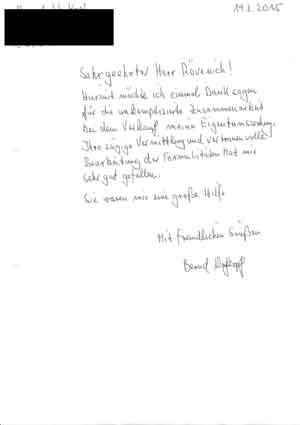 19.2.2015
Sehr geehrter Herr Rövenich!
Hiermit möchte ich einmal Dank sagen
für die unkomplizierte Zusammenarbeit
bei dem Verkauf meiner Eigentumswohng.
Ihre zügige Vermittlung und vertrauensvolle
Bearbeitung der Formalitäten hat mir
sehr gut gefallen.
Sie waren mir eine große Hilfe
Mit freundlichen Grüßen
Bernd